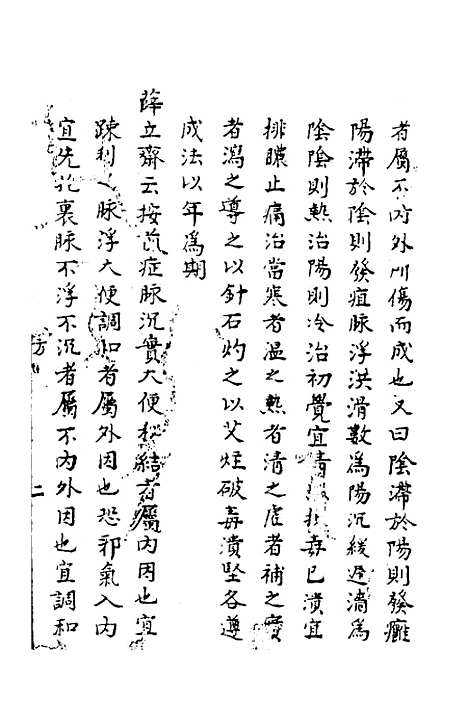 者屬不內外所傷而成也又曰陰滯於陽則發癰
陽滯於陰則發疽脉浮洪滑數爲陽沉緩遲濇爲
陰陰則熱治陽則冷治初覺宜清熱拔毒已潰宜
排膿止痛治當寒者温之熱者清之虛者補之實
者瀉之導之以針石灼之以艾炷破毒潰堅各遵
成法以年爲期
薛立齋云按前症脉沉實大便秘結者屬內因也宜
踈利脉浮大便調和者屬外因也恐邪氣入內
宜先托裏脉不浮不沉者屬不內外因也宜調和
方
二